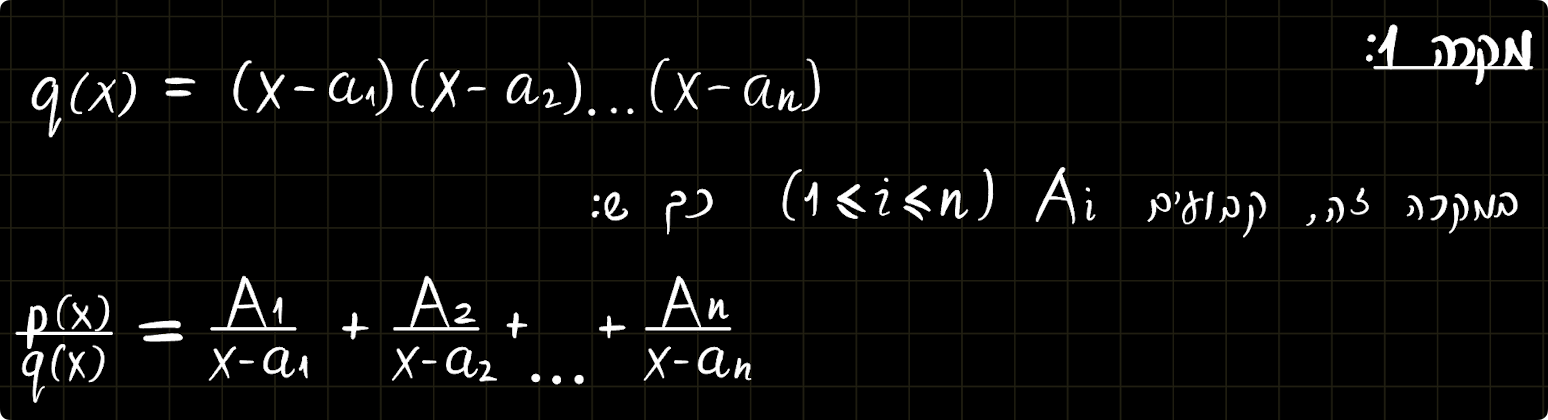 מקרה 1:
q(x) = (x-a₁)(x-a₂)...(x-aₙ)
במקרה זה, קבועים Aᵢ (1≤i≤n) כך ש:
p(x)/q(x) = A₁/(x-a₁) + A₂/(x-a₂) + ... + Aₙ/(x-aₙ)